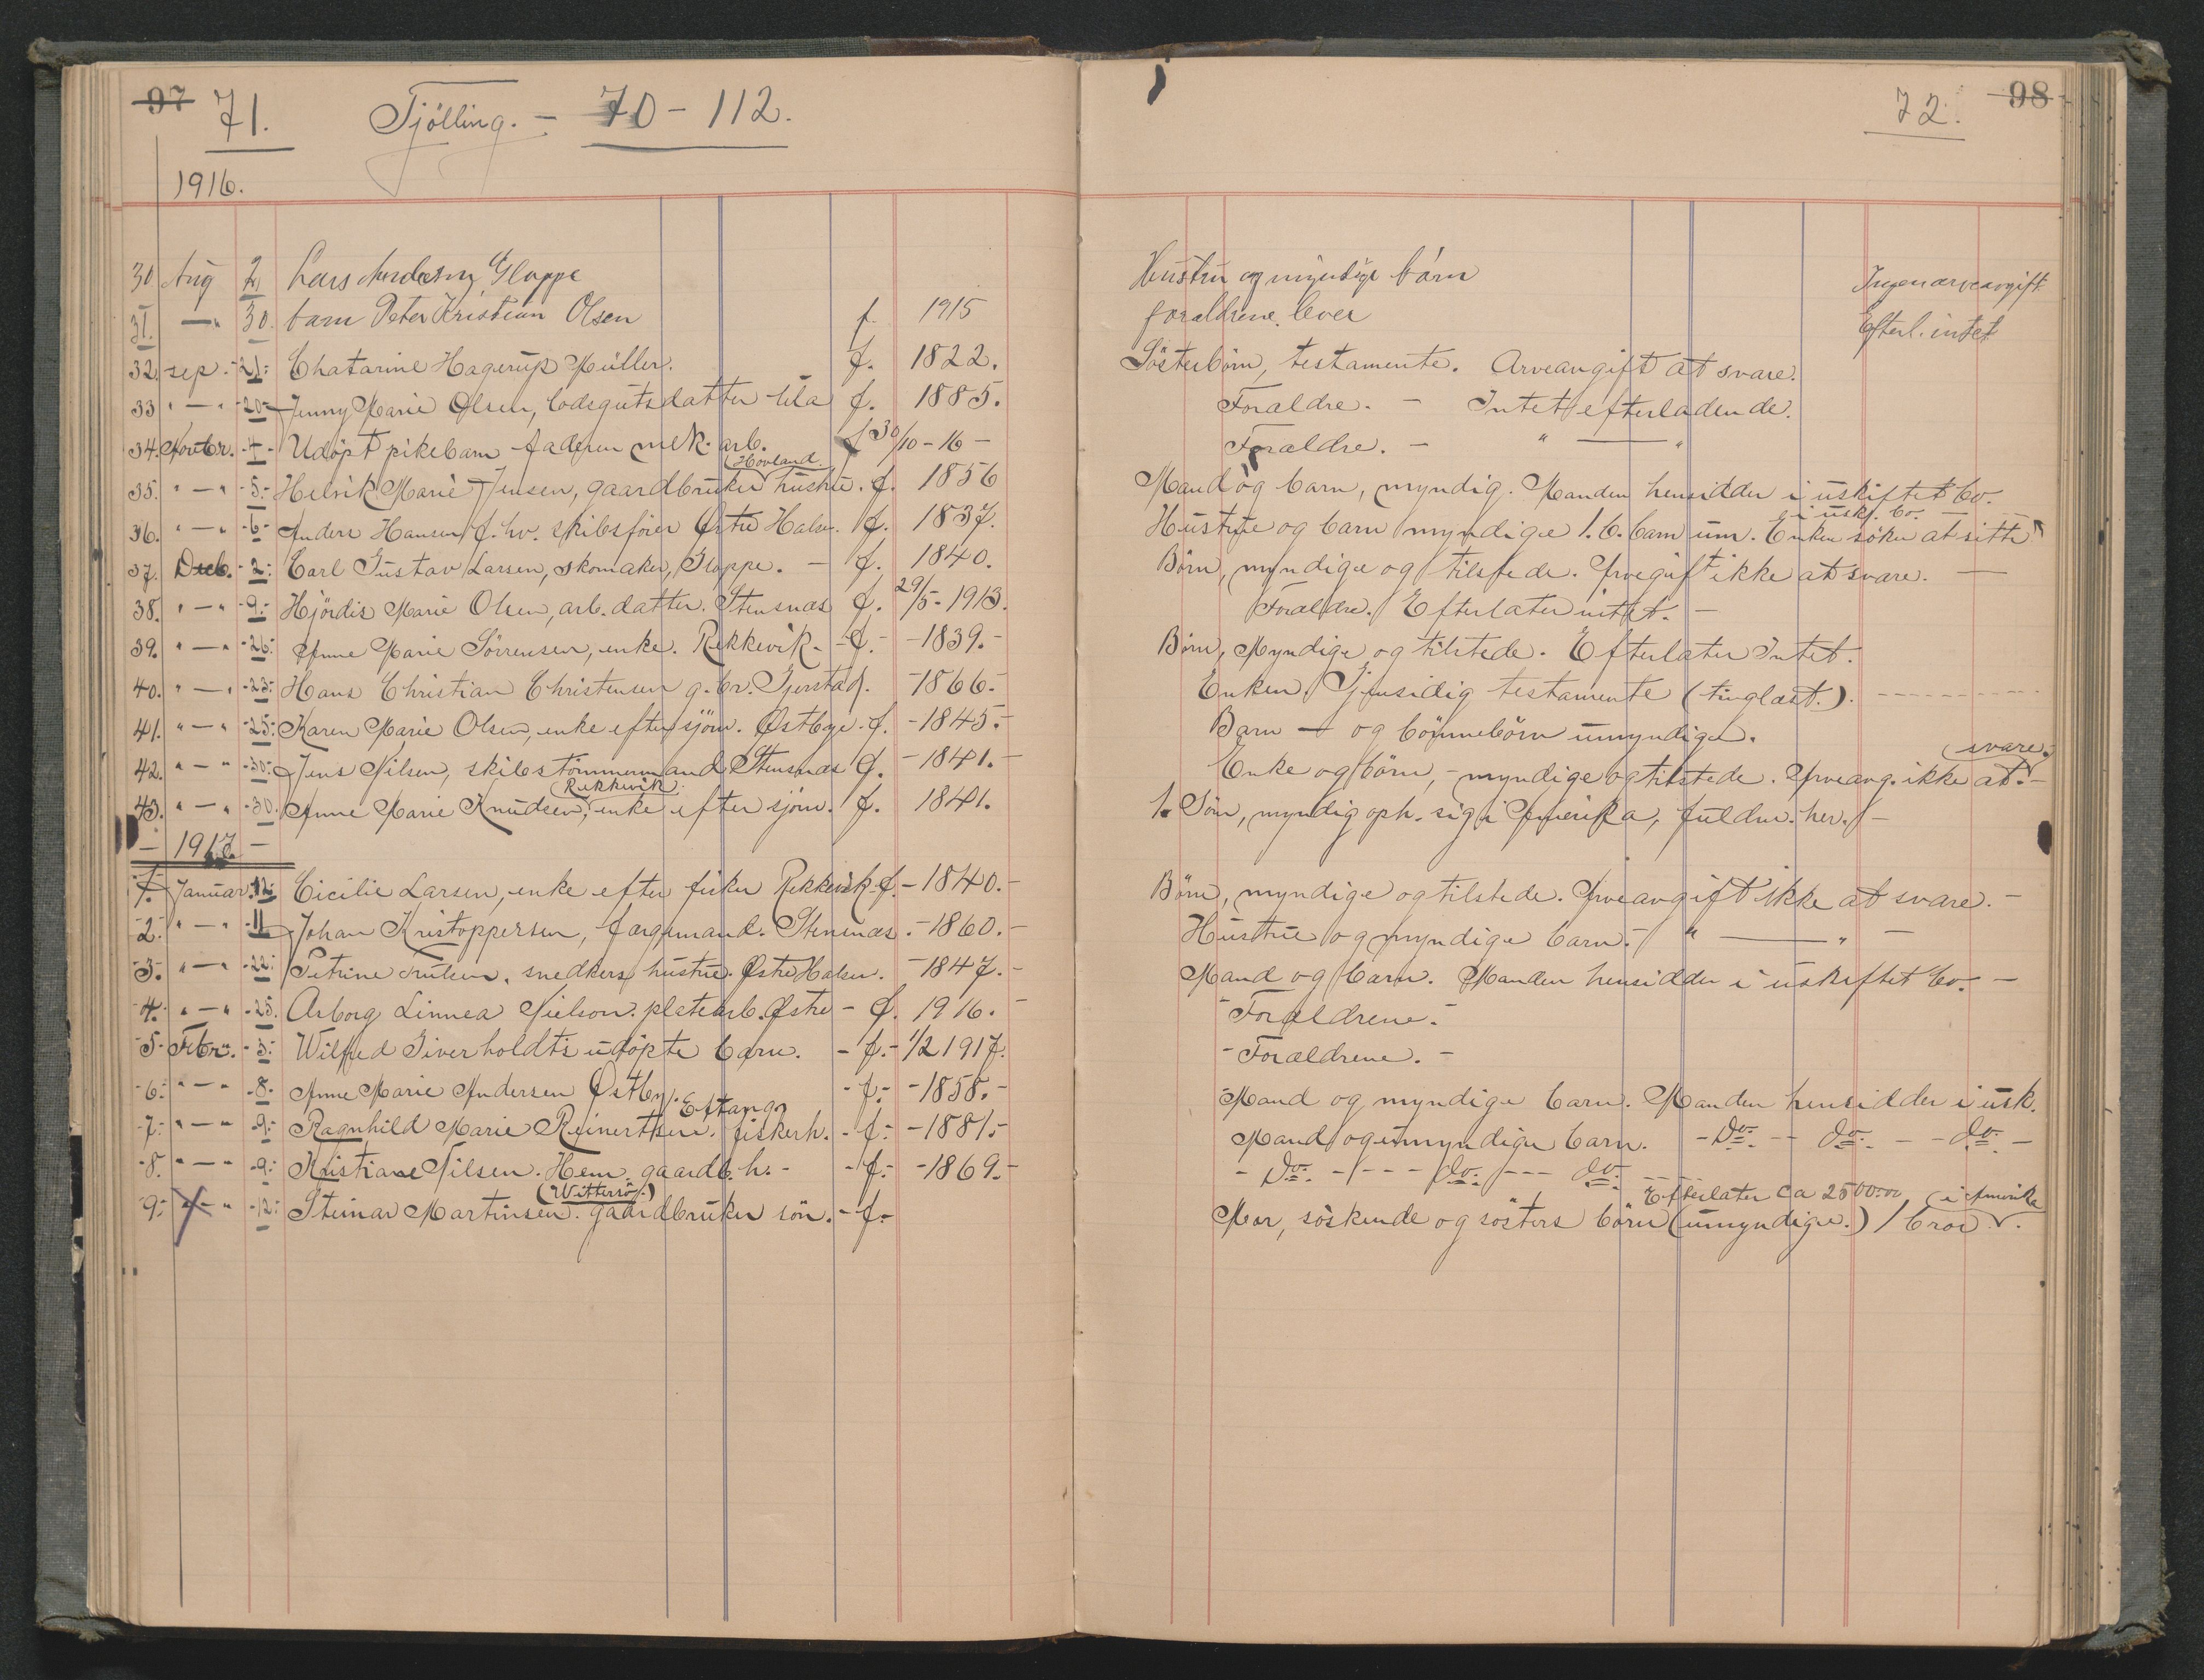 97 71. Tjölling. - 70 - 112.
1916.
30 Aug 2 Lars Andersen, Gloppe
31. - " 30. barn Peter Kristian Olsen f. 1915
32. sep. - 21: Chatarine Hagerup Müller. f. 1822.
33 " - " - 20 - Jenny Marie Olsen, lodsgutsdatter Ula f. 1885.
34. Novbr. - 4 - Udöpt pikebarn - faderen mek. arb. f 30/10 - 16 -
35. " - " - 5. - Helvik Marie Jensen, gaardbruker (Hovland.) hustru. f. 1856
36. " - " - 6 - Anders Hansen f. hv. skibsfører Østre Halsn. f. 1837.
37. Decb. - 2: Carl Gustav Larsen, skomaker, Gloppe. - f. 1840.
38. " - " - 9: Hjördis Marie Olsen, arb. datter. Stensnæs f. 29/5 - 1913.
39. " - " - 26: Anne Marie Sörrensen, enke. Rekkevik. - f. - 1839. -
40. " - " - 23: Hans Christian Christensen g. br. Gjerstad f. - 1866. -
41. " - " - 25: Karen Marie Olsen, enke efter sjöm. Østbye - f. - 1845. -
42. " - " - 30: Jens Nilsen, skibstömmermand Stensnæs f. - 1841. -
43. " - " - 30. Anne Marie Knudsen, (Rekkevik.) enke efter sjöm. f. 1841.
- 1917. -
1. Januar. 12: Cicilie Larsen, enke efter fisker Rekkevik f. - 1840. -
2. " - " - 11 Johan Kristoppersen, færgemand. Stensnæs. - 1860. -
3. " - " - 22: Petrine Trulsen. snedkers hustru. Østre Halsen. - 1847. -
4. " - " - 25. Asborg Linnea Nielson. platearb. Østre - f. 1916. -
5 - Febr. - 3: Wilfred Iverholdts udöpte barn. - f. - 1/2 1917.
6. " - " - 8. Anne Marie Andersen Østby. - f. - - 1858. -
7. " - " - 9. - Ragnhild Marie Reinertsen. Eftang fiskerh. - f. - - 1881. -
8. " - " - 9: Kristiane Nilsen. Hem. gaardb. h. - - f. - - 1869. -
9. " - " - 12: Steinar Martinsen. (Wittersö.) gaardbruker sön. - f. -
72. 98
Hustru og myndige børn Ingen arveavgift
forældrene lever Efterl. intet
Sösterbörn, testamente. Arveavgift at svare.
Forældre. - Intet efterladende.
Forældre. - " - "
Mand og barn, myndig. Manden hensidder i uskiftet bo.
Hustrue og barn myndige 1. b. barn um. Enken söker at sitte i usk. bo.
Börn, myndige og tilstede. Arvegift ikke at svare. -
Forældre. Efterlater intet. -
Börn, Myndige og tilstede. Efterlater Intet.
Enken. Gjensidig testamente (tinglæst.). -
Barn - og börnebörn umyndige.
Enke og börn, - myndige og tilstede. Arveavg. ikke at (svare.) -
1. Sön, myndig oph. sig i Amerika, fuldm. her. -
Börn, myndige og tilstede. Arveavgift ikke at svare. -
Hustrue og myndige barn. - " - " -
Mand og barn. Manden hensidder i uskiftet bo. -
- Forældrene. -
- Forældrene. -
Mand og myndige barn. Manden hensidder i usk.
Mand og umyndige barn. - Do. - - do. - - do. -
- Do. - - - - do. - - - do.
Efterlater ca 2500.00
Mor, söskende og sösters börn (umyndige.) 1 bror (i Amerika.